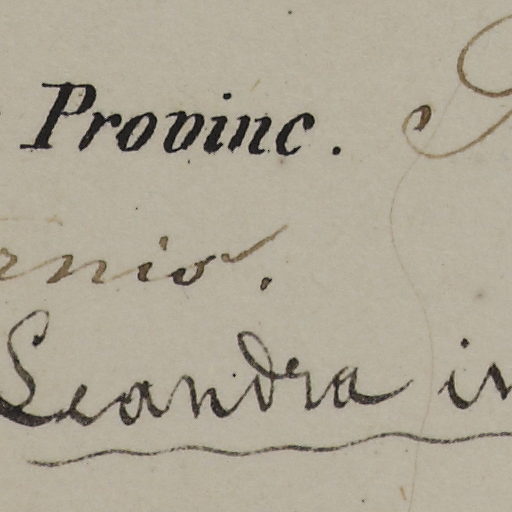 Provinc.
rnio.
Leandra in